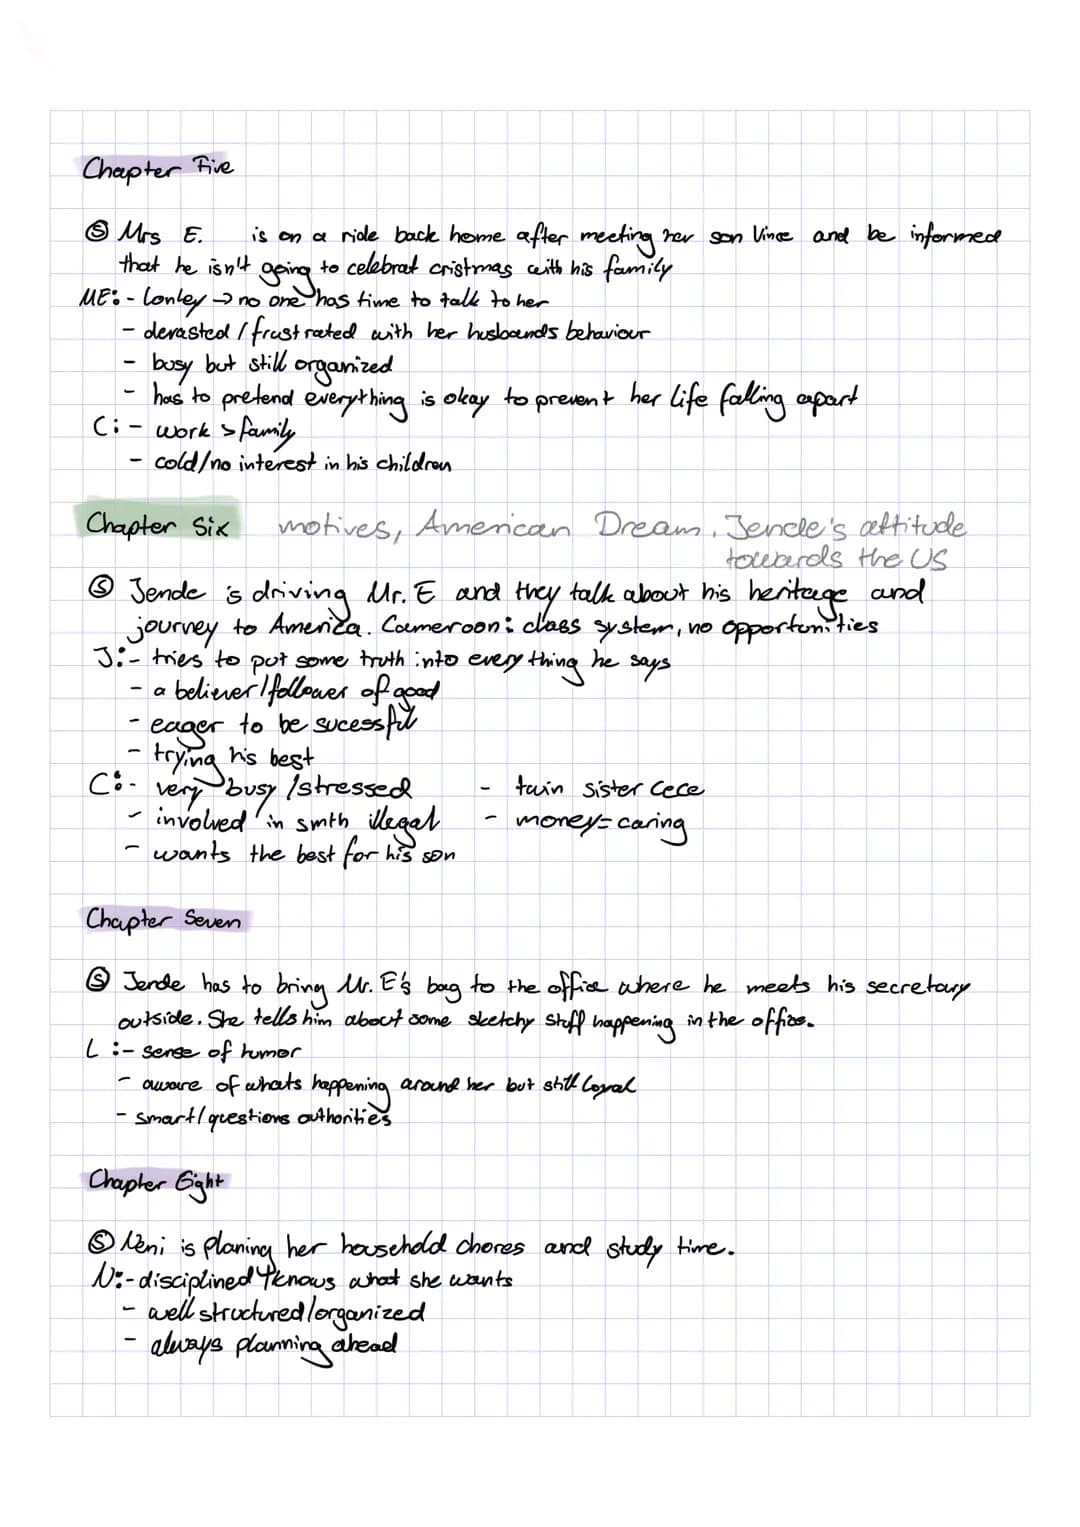 Chapter Five
Ⓢ Mrs E. is on a ride back home after meeting her son Vince and be informed
that he isn't going to celebrat cristmas with his family
ME: - Lonley → no one has time to talk to her
- devasted / frustrated with her husbands behaviour
- busy but still organized
- has to pretend everything is okay to prevent her life falling apart
C: - work > family
- cold/no interest in his children
Chapter Six motives, American Dream, Jende's attitude
towards the US
Ⓢ Jende is driving Mr. E and they talk about his heritage and
journey to America. Cameroon: class system, no opportunities
J: - tries to put some truth into everything he says
- a believer/follower of good
- eager to be sucessful
- trying his best
C: - very busy /stressed - twin sister Cece
- involved in smth illegal - money = caring
- wants the best for his son
Chapter Seven
Ⓢ Jende has to bring Mr. E's bag to the office where he meets his secretary
outside. She tells him about some sketchy stuff happening in the office.
L: - sense of humor
- aware of whats happening around her but still Loyal
- smart/questions authorities
Chapter Eight
Ⓢ Neni is planing her household chores and study time.
N: - disciplined + knows what she wants
- well structured/organized
- always planning ahead